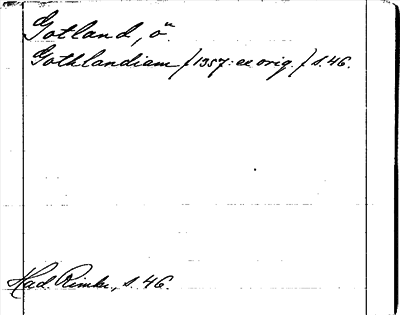 Gotland, ö.
Gothlandiam /1357: ex orig./ s. 46.
Had. Rimbe, s. 46.